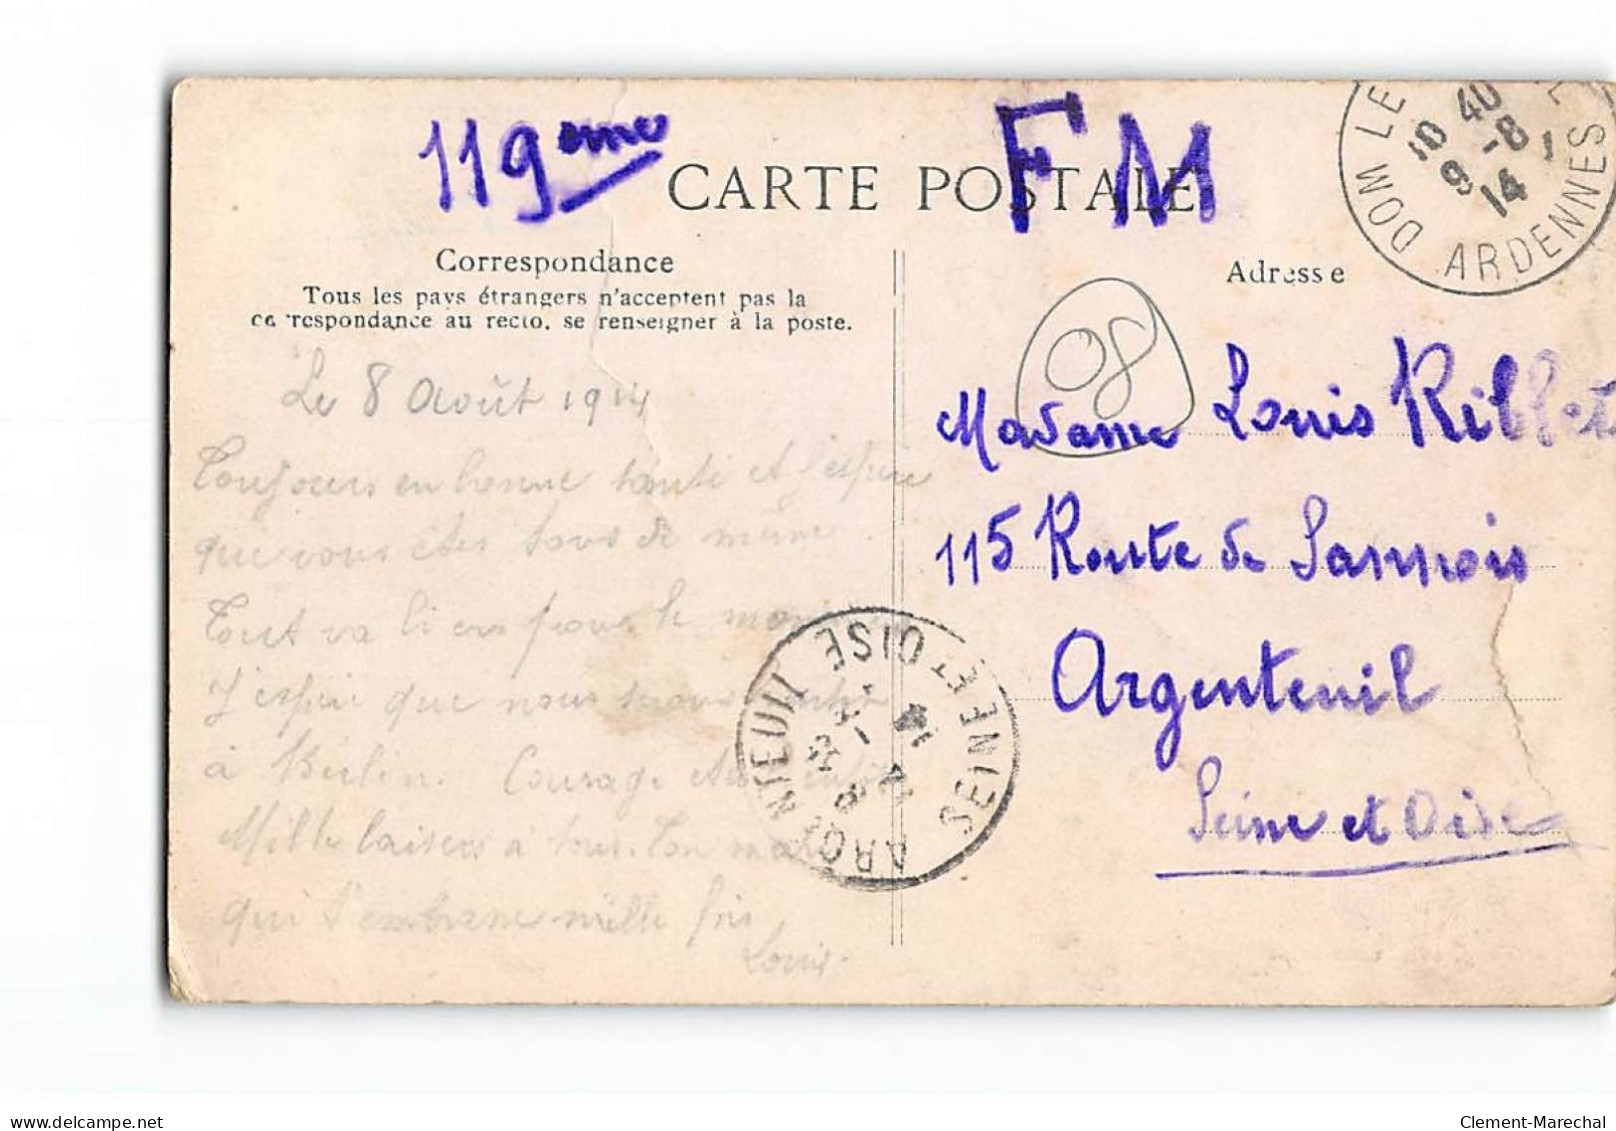 119eme
FM
CARTE POSTALE
Correspondance
Tous les pays étrangers n'acceptent pas la
correspondance au recto, se renseigner à la poste.
Le 8 Août 1914
Toujours en bonne santé et j'espère
que vous êtes tous de même.
Tout va bien pour le
J'espère que nous nous
à Berlin. Courage
Mille baisers à tous. Ton
qui t'embrasse mille fois
Louis
DOM LE
ARDENNES
10 40
9 -8
14
Adresse
08
Madame Louis
115 Route de Sannois
Argenteuil
Seine et Oise
ARGENTEUIL
SEINE ET OISE
delcampe.net
Clement-Marechal